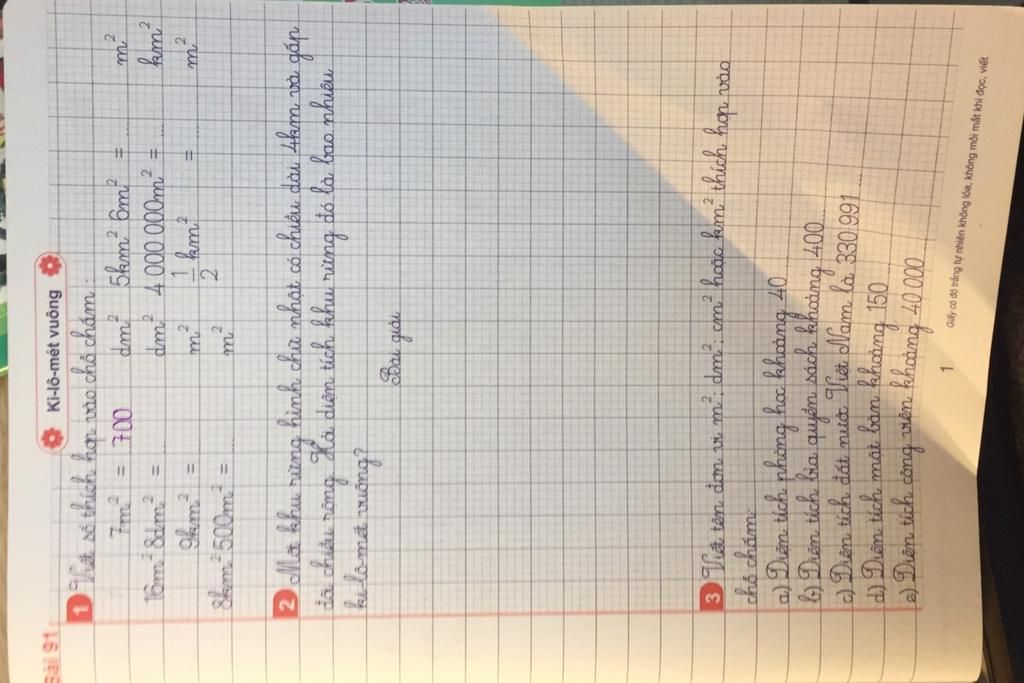 Bài 91
Ki-lô-mét vuông
1 Viết số thích hợp vào chỗ chấm:
7m² = 700 dm² 5km² 6m² = ... m²
16m² 8dm² = ... dm² 4 000 000m² = ... km²
9km² = ... m² 1/2 km² = ... m²
8km² 500m² = ... m²
2 Một khu rừng hình chữ nhật có chiều dài 4km và gấp
đôi chiều rộng. Hỏi diện tích khu rừng đó là bao nhiêu
ki-lô-mét vuông?
Bài giải
3 Viết tên đơn vị m²; dm²; cm² hoặc km² thích hợp vào
chỗ chấm:
a) Diện tích phòng học khoảng 40 ...
b) Diện tích bìa quyển sách khoảng 400 ...
c) Diện tích đất nước Việt Nam là 330 991 ...
d) Diện tích mặt bàn khoảng 150 ...
e) Diện tích công viên khoảng 40 000 ...
1
Giấy có độ trắng tự nhiên không lóa, không mỏi mắt khi đọc, viết